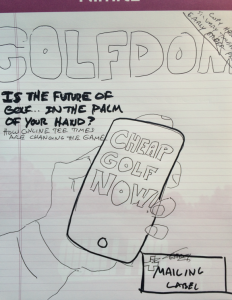 GOLFDOM
IS THE FUTURE OF
GOLF... IN THE PALM
OF YOUR HAND?
HOW ONLINE TEE TIMES
ARE CHANGING THE GAME
CHEAP
GOLF
NOW!
MAILING
LABEL